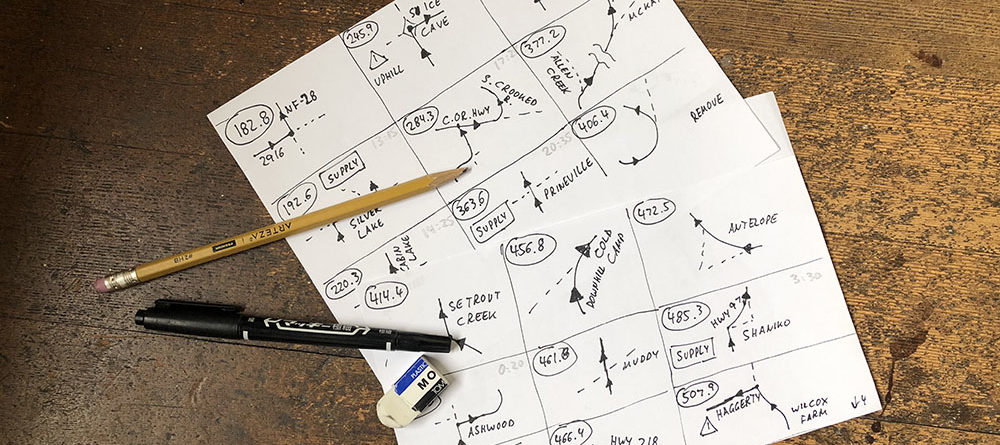 245.9
S. ICE
CAVE
UPHILL
377.2
ALLEN
CREEK
182.8
NF-28
2916
284.3
C.OR.HWY
S. CROOKED
R.
406.4
REMOVE
192.6
SUPPLY
SILVER
LAKE
363.6
SUPPLY
PRINEVILLE
20:35
220.3
CABIN
LAKE
14:25
414.4
SETROUT
CREEK
456.8
DOWNHILL COLD
CAMP
472.5
ANTELOPE
3:30
0:20
461.8
MUDDY
485.3
HWY 97
SUPPLY
SHANIKO
ASHWOOD
466.4
HWY 218
507.9
HAGGERTY
WILCOX
FARM
↓4
ARTEZA
#2HB
PLASTIC
MO